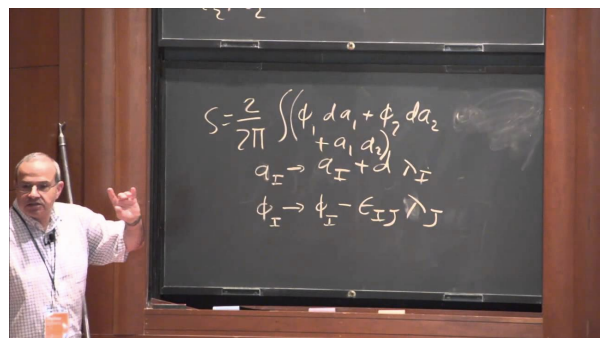 S = 2/2π ∫(ϕ₁ da₁ + ϕ₂ da₂
+ a₁ a₂)
a_I → a_I + d λ_I
ϕ_I → ϕ_I − ϵ_IJ λ_J